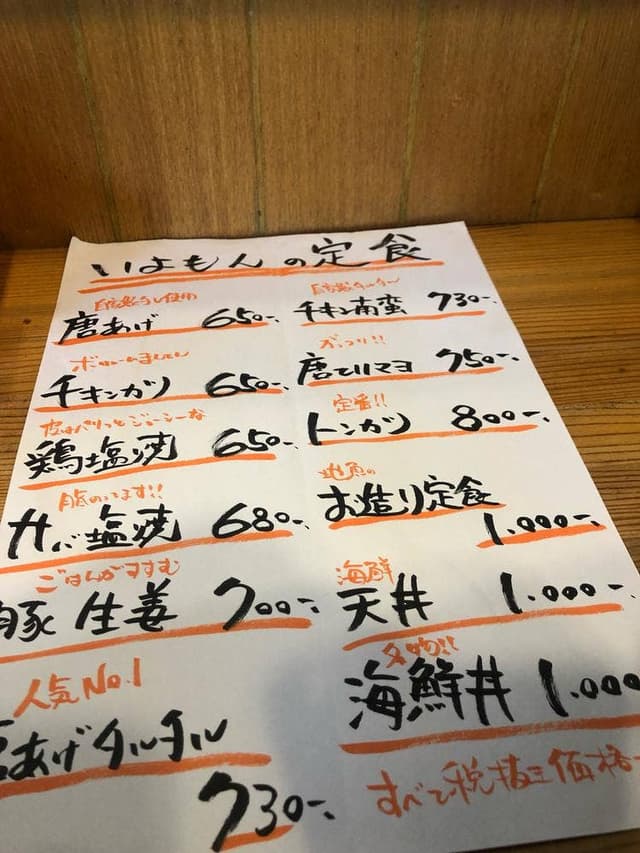 いよもんの定食
唐あげ 650-
ボリュームましまし
チキンカツ 650-
皮はパリっとジューシーな
鶏塩焼 650-
脂のってます!!
サバ塩焼 680-
ごはんがすすむ
豚生姜 700-
人気No.1
あげタルタル
730-
自家製タルタル
チキン南蛮 730-
ガッツリ!!
唐テリマヨ 750-
定番!!
トンカツ 800-
地魚の
お造り定食
1.000-
海鮮
天丼 1.000-
名物!!
海鮮丼 1.000
すべて税抜き価格